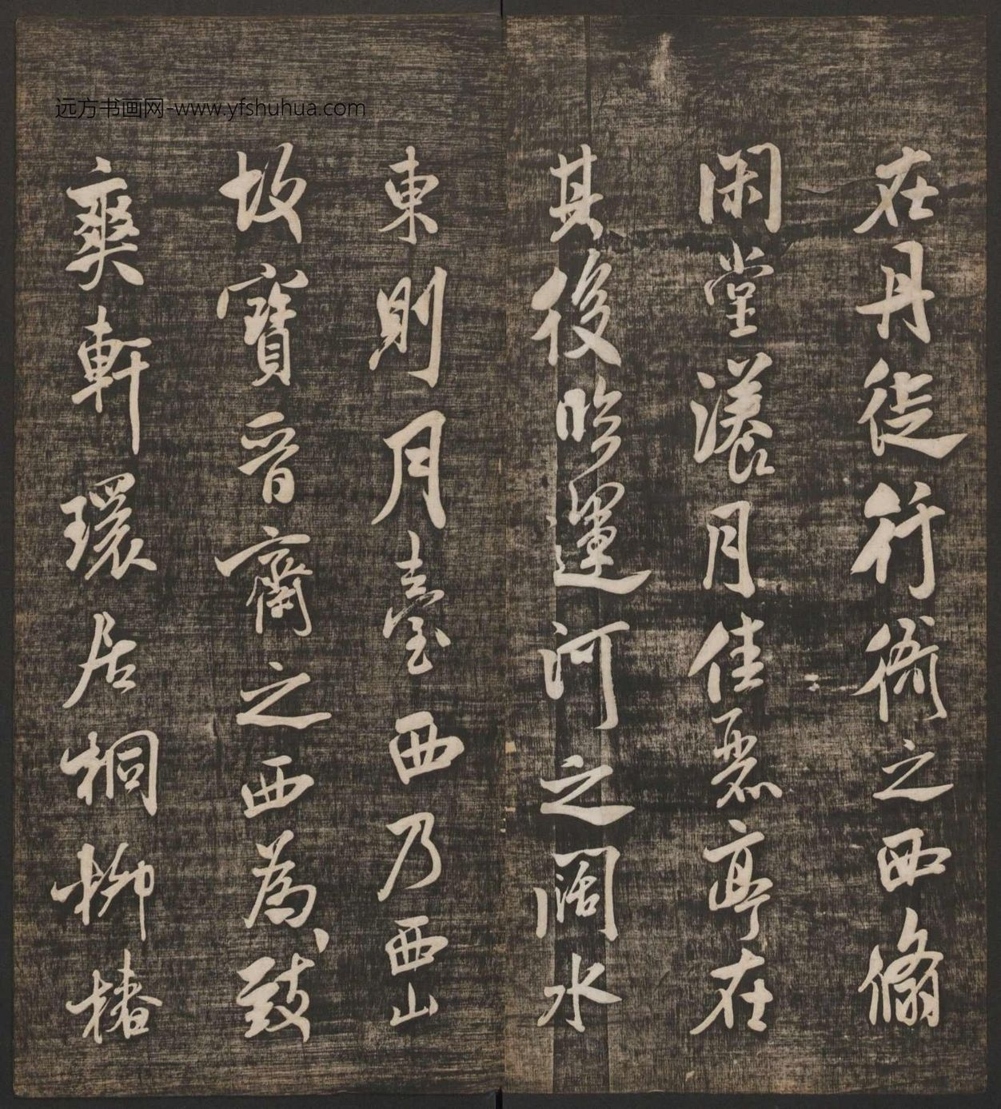 远方书画网-www.yfshuhua.com
在丹徒行衙之西翛
闲堂漾月佳丽亭在
其後臨運河之阔水
東則月臺西乃西山
故寶晋齋之西為致
爽軒環居桐柳椿